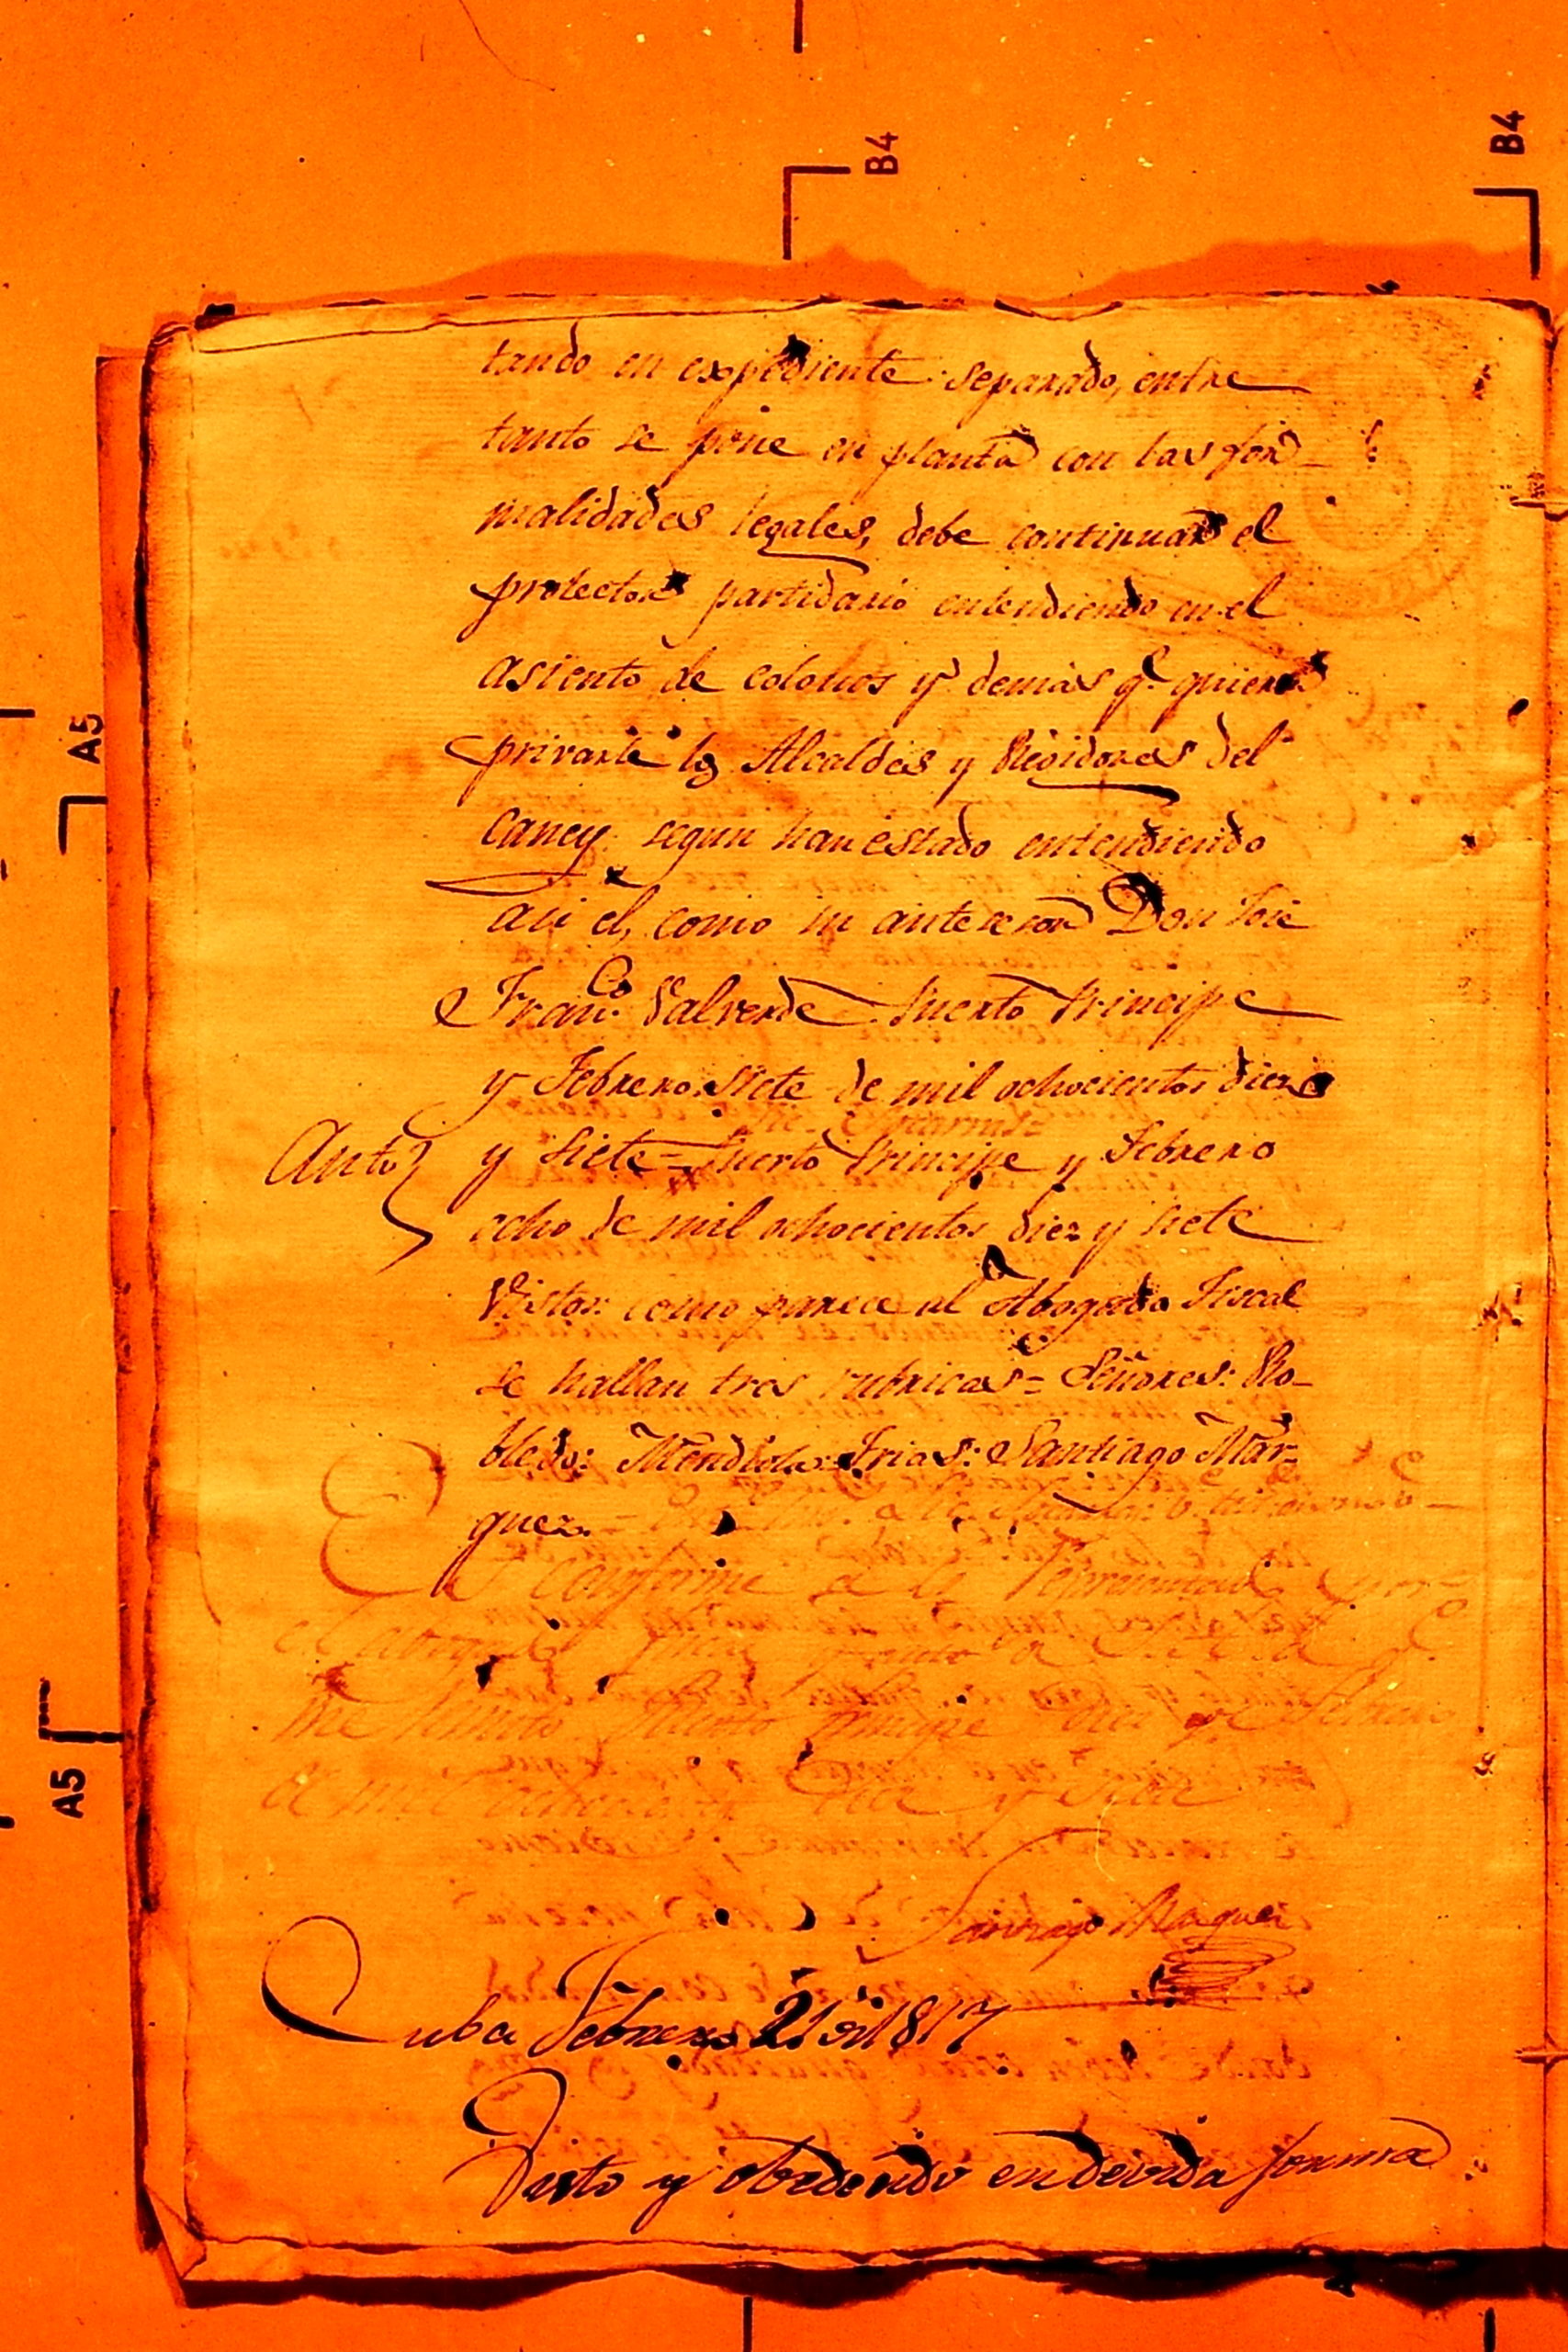 B4
B4
tando en expediente separado, entre
tanto se pone en planta con las for-
malidades legales, debe continuar el
protector partidario entendiendo en el
asiento de colonos y demas q.e quieren
privarle los Alcaldes y Regidores del
caney segun han estado entendiendo
asi el, como su antecesor Don José
Fran.co Valverde. Puerto Principe
y Febrero siete de mil ochocientos diez
Auto
y siete = Puerto Principe y Febrero
ocho de mil ochocientos diez y siete
Vistos: como parece al Abogado Fiscal
se hallan tres rubricas = Señores: Ro-
bledo: Mendiola: Frias: Santiago Mar-
quez. =
Es conforme a lo
el abogado fiscal
me remito. Puerto Principe diez de Febrero
de mil ochocientos diez y siete
Santiago Marquez
Cuba Febrero 21 de 1817
Visto y obedecido en devida forma
A5
A5